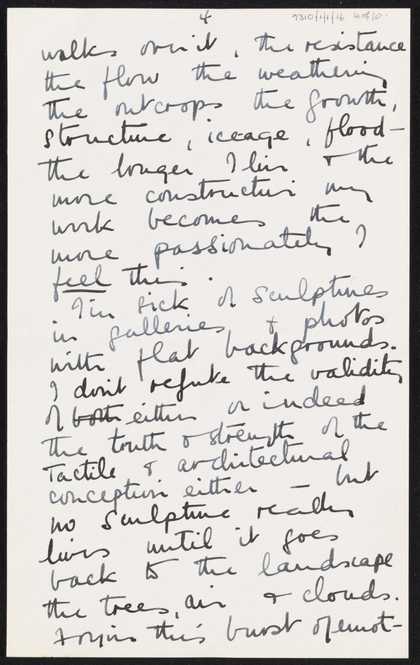 4
walks over it, the resistance
the flow the weathering
the outcrops the growth,
structure, iceage, flood-
the longer I live & the
more constructive my
work becomes the
more passionately I
feel this.
I'm sick of sculptures
in galleries & photos
with flat backgrounds.
I don't refute the validity
of both either or indeed
the truth & strength of the
Tactile & architectural
conception either — but
no sculpture really
lives until it goes
back to the landscape
the trees, air & clouds.
this burst of emot-